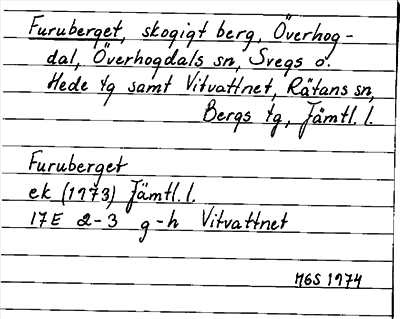 Furuberget, skogigt berg, Överhog-
dal, Överhogdals sn, Svegs o.
Hede tg samt Vitvattnet, Rätans sn,
Bergs tg, Jämtl. l.
Furuberget
ek (1973) Jämtl. l.
17E 2-3 g-h Vitvattnet
MGS 1974